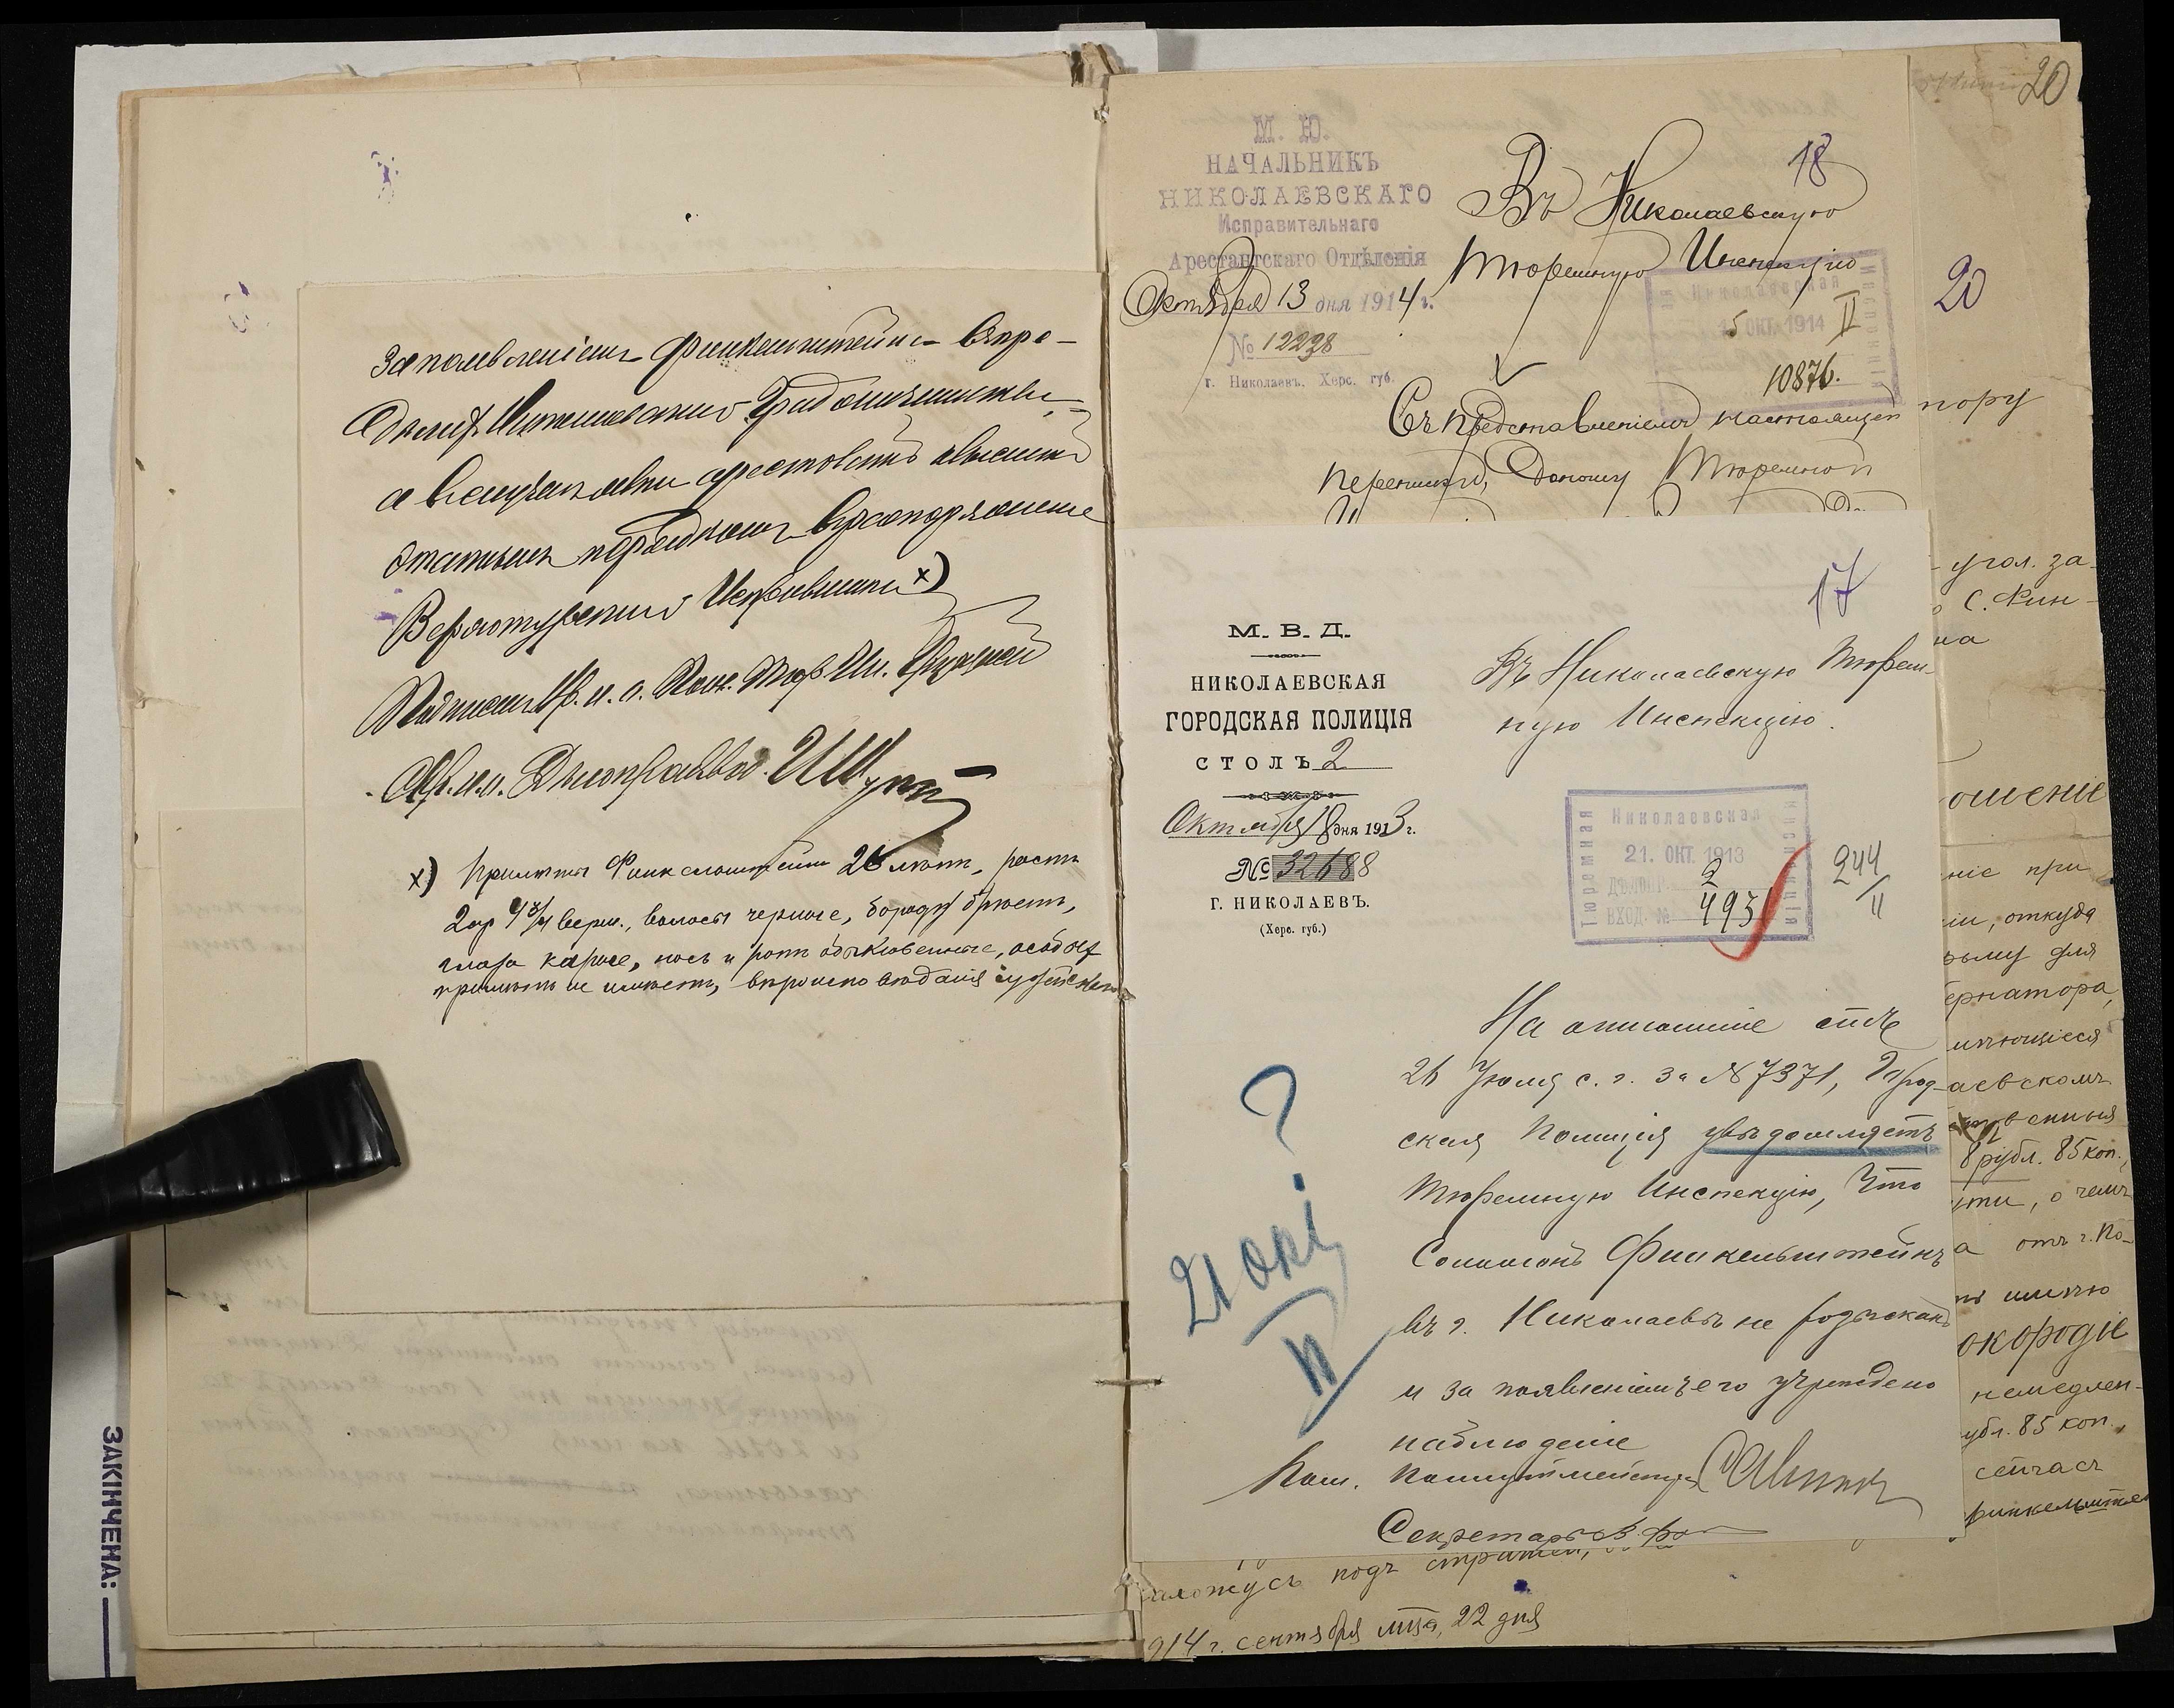 за появленіемъ Финкельштейна въ пре-
а въ случаѣ явки арестовать и выслать
этапнымъ порядкомъ въ распоряженіе
Верхотурскаго Исправника х)
Подписалъ Вр. и. о. Пом. Тюр. Ин.
Вр. и. о. Дѣлопроизвод.
х) Примѣты Финкельштейна 26 лѣтъ, ростъ
2 ар 4 3/4 верш., волосы черные, бороду брѣетъ,
глаза каріе, носъ и ротъ обыкновенные, особыхъ
примѣтъ не имѣетъ, вѣроисповѣданія іудейскаго
М. Ю.
НАЧАЛЬНИКЪ
НИКОЛАЕВСКАГО
Исправительнаго
Арестантскаго Отдѣленія
Октября 13 дня 1914 г.
№ 12238
г. Николаевъ. Херс. губ.
18
Въ Николаевскую
Тюремную Инспекцію
Николаевская
15 ОКТ. 1914
II
10876.
Съ представленіемъ настоящей
переписки, доношу Тюремной
17
М. В. Д.
НИКОЛАЕВСКАЯ
ГОРОДСКАЯ ПОЛИЦІЯ
СТОЛЪ 2
Октября 18 дня 1913 г.
№ 32688
Г. НИКОЛАЕВЪ.
(Херс. губ.)
Въ Николаевскую Тюрем-
ную Инспекцію.
Николаевская
Тюремная
Инспекція
21. ОКТ. 1913
ДѢЛОПР. 2
ВХОД. № 4931
244/II
На отношеніе отъ
26 Іюля с. г. за № 7371, Город-
ская Полиція увѣдомляетъ
Тюремную Инспекцію, что
Соломонъ Финкельштейнъ
въ г. Николаевѣ не розысканъ
и за появленіемъ его учреждено
наблюденіе
Пом. Полицмейстера
Секретарь
?
21 окт
II
20
20
пору
угол. за-
С. Фин-
на
ошеніе
ніе при
откуда
для
ернатора,
имѣющіеся
аевскомъ
8 рубл. 85 коп.,
о чемъ
а отъ г. По-
имѣю
окородіе
немедлен-
убл. 85 коп.,
сейчасъ
финкельштей
подъ
914 г. сентября мѣс, 22 дня
ЗАКІНЧЕНА: